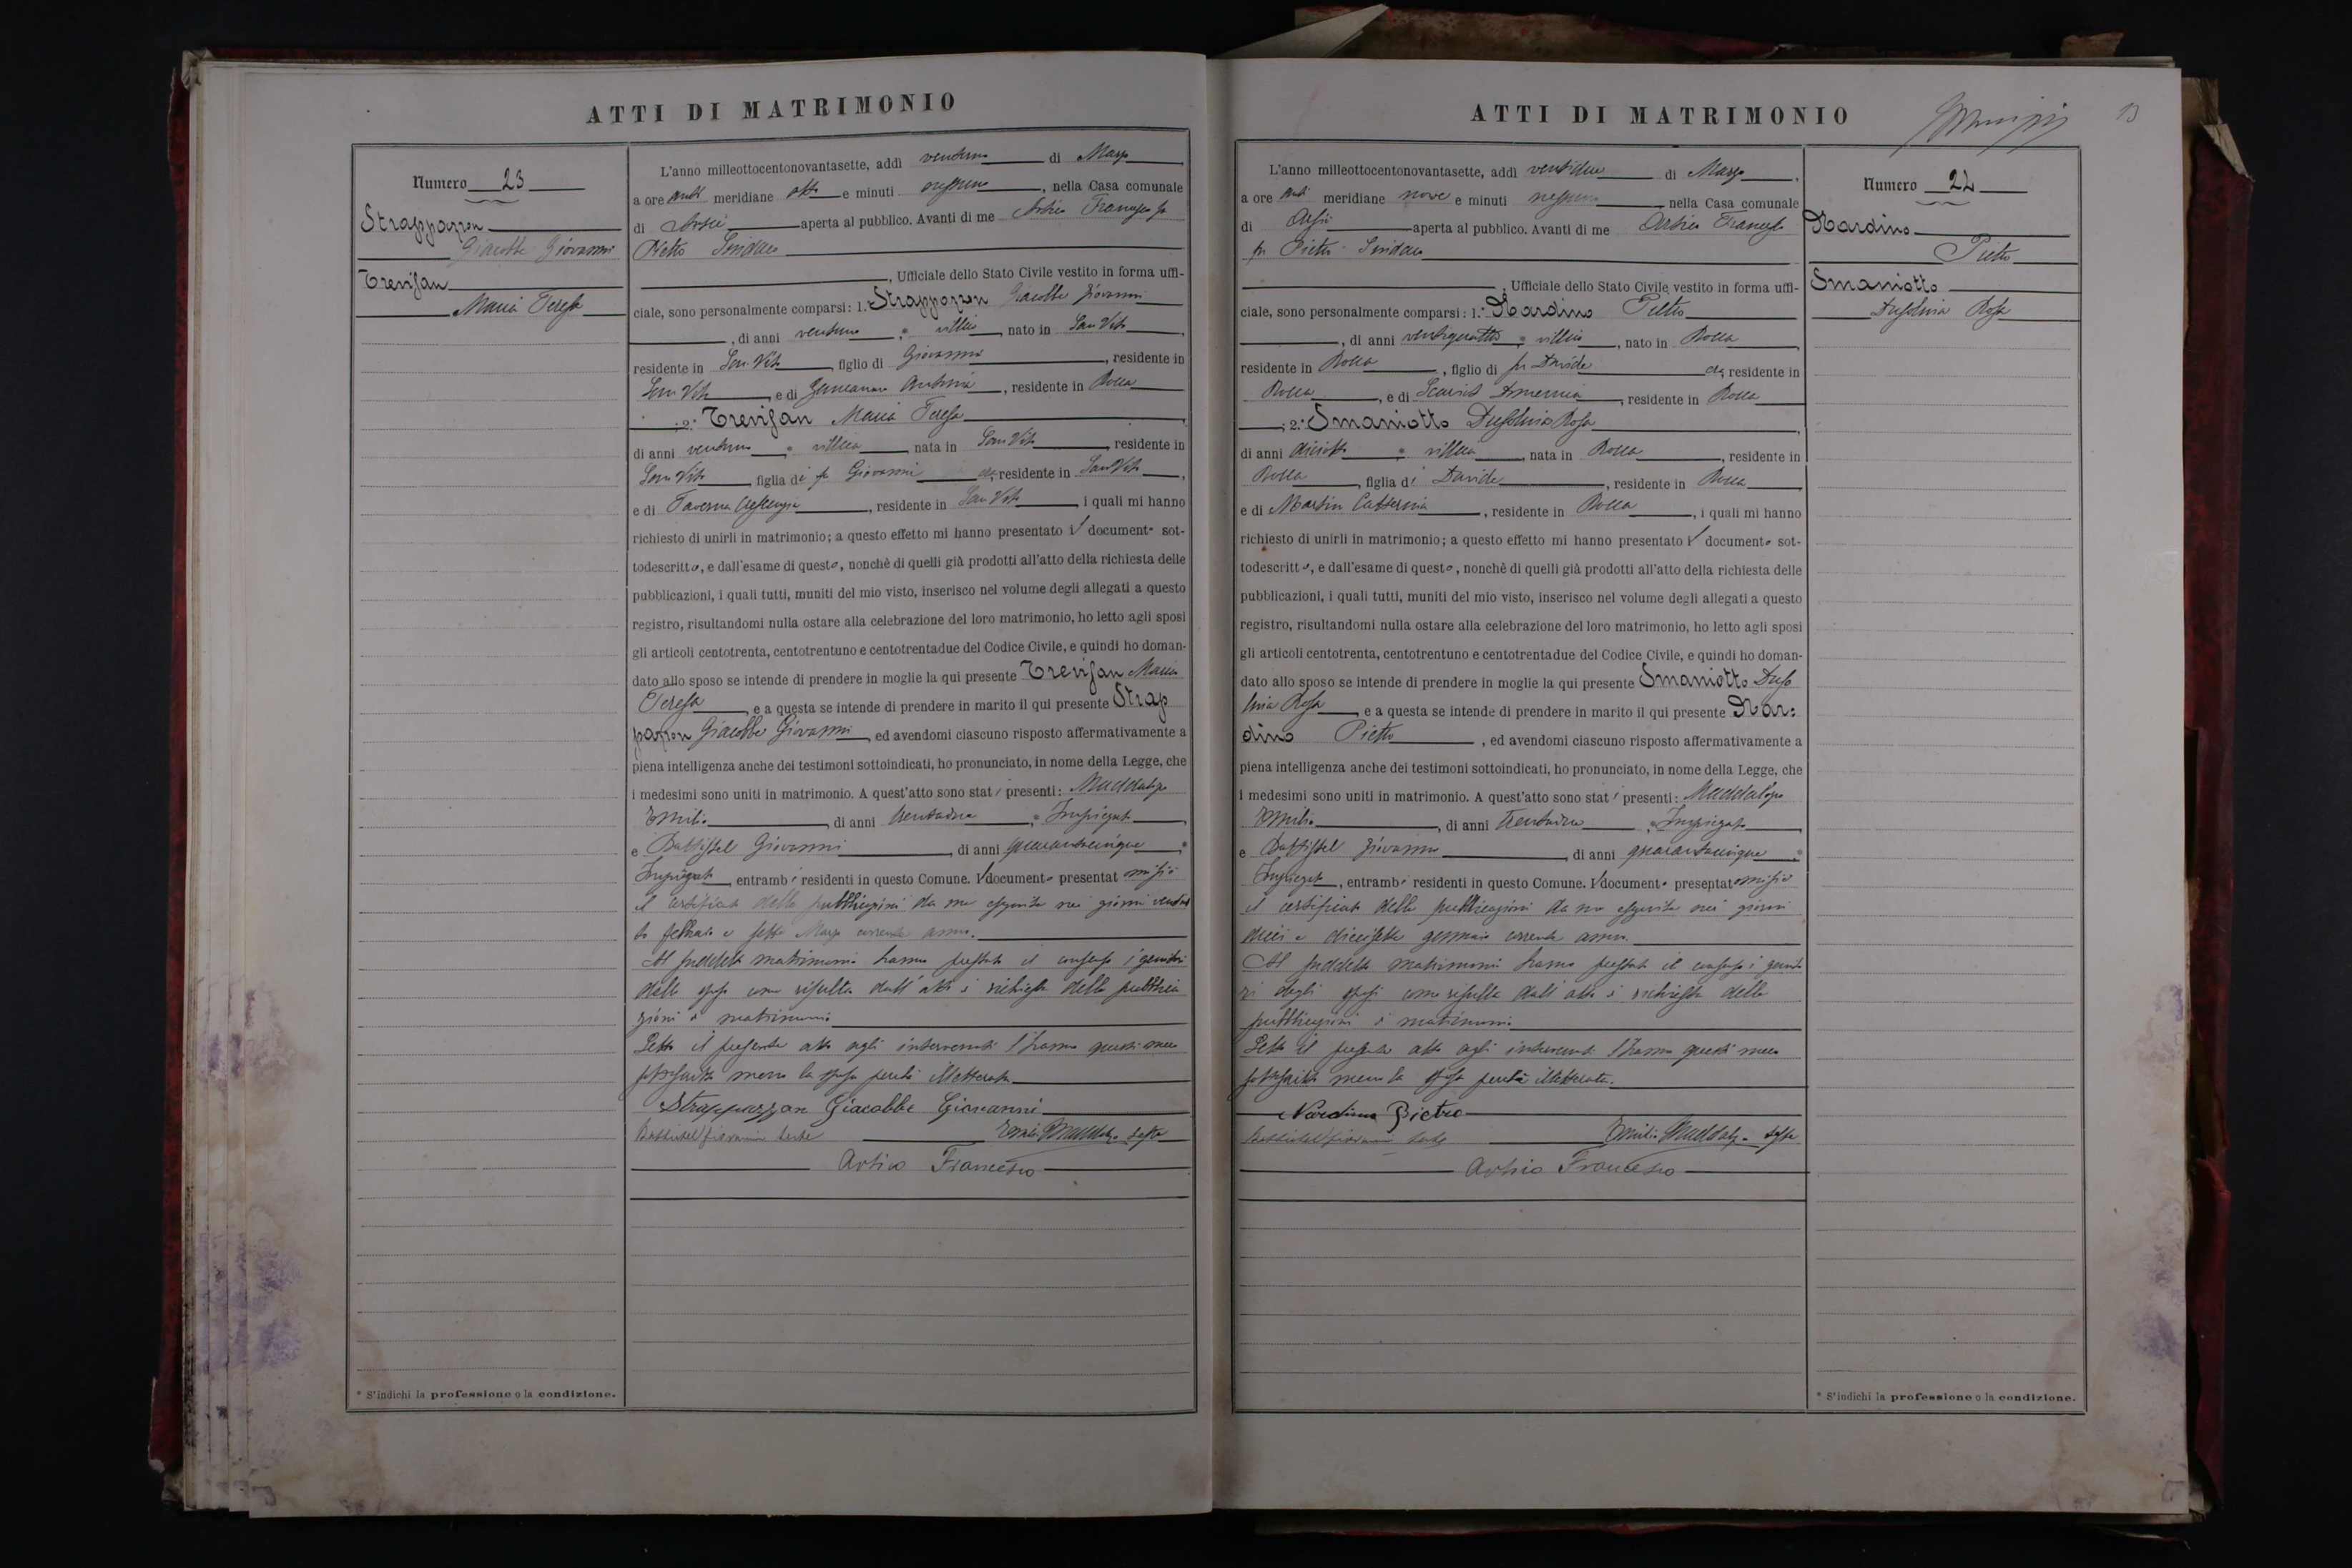 ATTI DI MATRIMONIO
Numero 23
Strappazzon
Giacobbe Giovanni
Trevisan
Maria Teresa
* S'indichi la professione o la condizione.
L'anno milleottocentonovantasette, addì ventuno di Marzo
a ore anti meridiane otto e minuti nessuno, nella Casa comunale
di Arsiè aperta al pubblico. Avanti di me Arsico Francesco fu
Pietro Sindaco
, Ufficiale dello Stato Civile vestito in forma uffi-
ciale, sono personalmente comparsi: 1.° Strappazzon Giacobbe Giovanni
, di anni ventuno, * villico, nato in San Vito,
residente in San Vito, figlio di Giovanni, residente in
San Vito, e di Zancanaro Antonia, residente in Rocca
; 2.° Trevisan Maria Teresa,
di anni ventuno, * villica nata in San Vito, residente in
San Vito, figlia di fu Giovanni residente in San Vito,
e di Taverna, residente in San Vito, i quali mi hanno
richiesto di unirli in matrimonio; a questo effetto mi hanno presentato il documento sot-
todescritto, e dall'esame di questo, nonchè di quelli già prodotti all'atto della richiesta delle
pubblicazioni, i quali tutti, muniti del mio visto, inserisco nel volume degli allegati a questo
registro, risultandomi nulla ostare alla celebrazione del loro matrimonio, ho letto agli sposi
gli articoli centotrenta, centotrentuno e centotrentadue del Codice Civile, e quindi ho doman-
dato allo sposo se intende di prendere in moglie la qui presente Trevisan Maria
Teresa, e a questa se intende di prendere in marito il qui presente Strap
pazzon Giacobbe Giovanni, ed avendomi ciascuno risposto affermativamente a
piena intelligenza anche dei testimoni sottoindicati, ho pronunciato, in nome della Legge, che
i medesimi sono uniti in matrimonio. A quest'atto sono stati presenti: Maddalozzo
Emilio, di anni trentadue, * Impiegato,
e Battistel Giovanni, di anni quarantacinque, *
Impiegato, entrambi residenti in questo Comune. Il documento presentato mi si è
il certificato delle pubblicazioni da me eseguite nei giorni
febbraio e sette Marzo corrente anno.
Al suddetto matrimonio hanno prestato il consenso i genitori
dello sposo come risulta dall'atto di richiesta delle pubblica
zioni di matrimonio
Letto il presente atto agli intervenuti l'hanno questi meco
sottoscritto meno la sposa perchè illetterata
Strappazzon Giacobbe Giovanni
Battistel Giovanni teste Emilio Maddalozzo teste
Arsico Francesco
ATTI DI MATRIMONIO
13
L'anno milleottocentonovantasette, addì ventidue di Marzo,
a ore anti meridiane nove e minuti nessuno nella Casa comunale
di Arsiè aperta al pubblico. Avanti di me Arsico Francesco
fu Pietro Sindaco
, Ufficiale dello Stato Civile vestito in forma uffi-
ciale, sono personalmente comparsi: 1.° Nardino Pietro
, di anni ventiquattro, * villico, nato in Rocca,
residente in Rocca, figlio di fu Davide residente in
Rocca, e di, residente in Rocca
; 2.° Smaniotto Dusolina Rosa,
di anni diciotto, * villica, nata in Rocca, residente in
Rocca, figlia di Davide, residente in Rocca,
e di Martin Catterina, residente in Rocca, i quali mi hanno
richiesto di unirli in matrimonio; a questo effetto mi hanno presentato il documento sot-
todescritto, e dall'esame di questo, nonchè di quelli già prodotti all'atto della richiesta delle
pubblicazioni, i quali tutti, muniti del mio visto, inserisco nel volume degli allegati a questo
registro, risultandomi nulla ostare alla celebrazione del loro matrimonio, ho letto agli sposi
gli articoli centotrenta, centotrentuno e centotrentadue del Codice Civile, e quindi ho doman-
dato allo sposo se intende di prendere in moglie la qui presente Smaniotto Duso
lina Rosa, e a questa se intende di prendere in marito il qui presente Nar=
dino Pietro, ed avendomi ciascuno risposto affermativamente a
piena intelligenza anche dei testimoni sottoindicati, ho pronunciato, in nome della Legge, che
i medesimi sono uniti in matrimonio. A quest'atto sono stati presenti: Maddalozzo
Emilio, di anni trentadue, * Impiegato,
e Battistel Giovanni, di anni quarantacinque, *
Impiegato, entrambi residenti in questo Comune. Il documento presentato mi si è
il certificato delle pubblicazioni da me eseguite nei giorni
dieci e diecisette gennaio corrente anno.
Al suddetto matrimonio hanno prestato il consenso i genito
ri degli sposi come risulta dall'atto di richiesta delle
pubblicazioni di matrimonio
Letto il presente atto agli intervenuti l'hanno questi meco
sottoscritto meno la sposa perchè illetterata.
Nardino Pietro
Battistel Giovanni teste Emilio Maddalozzo teste
Arsico Francesco
Numero 24
Nardino
Pietro
Smaniotto
Dusolina Rosa
* S'indichi la professione o la condizione.